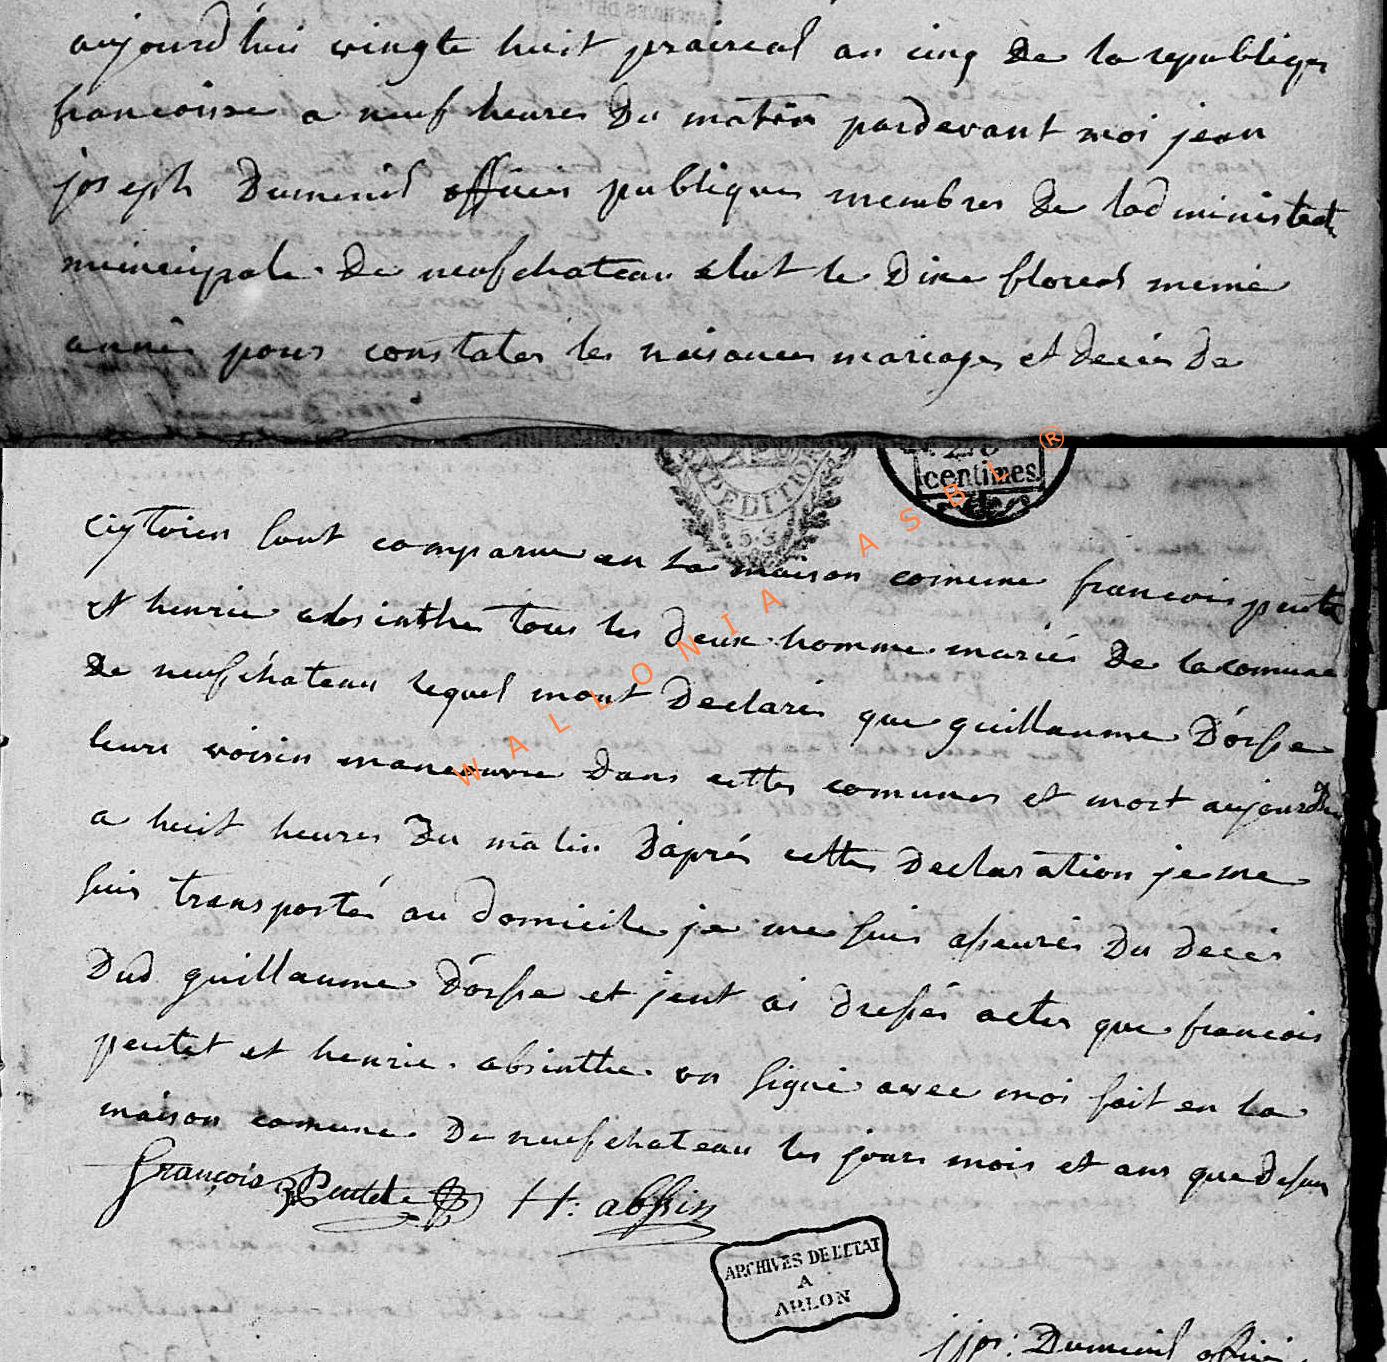 aujourdhui vingte huit prairial an cinq de la republique
francoisse a neuf heures du matin pardevant moi jean
joseph Dumenil officier publiques membres de ladministrati
municipale de neufchateau elut le dixe floreal meme
année pour constater les naisances mariages et deces de
ciytoien sont comparue en la maison comune francois peutet
et henrie absinthe tous les deux homme mariés de la comune
de neufchateau lequel mont declarés que guillaume D'orsse
leure voisin maneuvre dans cette comunes et mort aujourdhui
a huit heures du matin d'aprés cette declaration je me
suis transportés au domicile je me suis asseurés du deces
dud guillaume D'orsse et jent ai dressés actes que francois
peutet et henrie absinthe on signé avec moi fait en la
maison comune de neufchateau les jours mois et ans que dessus
François Peutet H: abssin
jjos: Dumenil offici
EXPEDITION
5.3
centimes
WALLONIA ASBL ®
ARCHIVES DE L'ETAT
A
ARLON